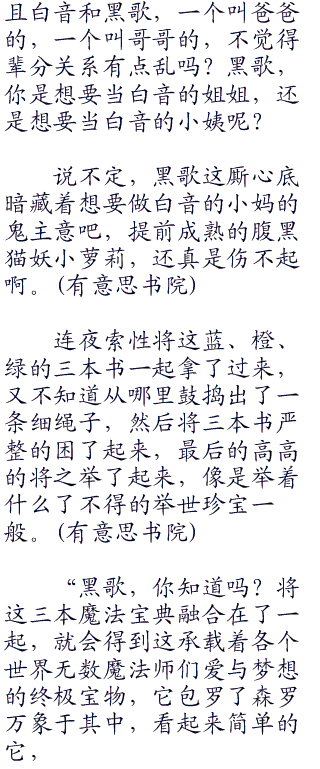 且白音和黑歌，一个叫爸爸
的，一个叫哥哥的，不觉得
辈分关系有点乱吗？黑歌，
你是想要当白音的姐姐，还
是想要当白音的小姨呢？
说不定，黑歌这厮心底
暗藏着想要做白音的小妈的
鬼主意吧，提前成熟的腹黑
猫妖小萝莉，还真是伤不起
啊。(有意思书院)
连夜索性将这蓝、橙、
绿的三本书一起拿了过来，
又不知道从哪里鼓捣出了一
条细绳子，然后将三本书严
整的困了起来，最后的高高
的将之举了起来，像是举着
什么了不得的举世珍宝一
般。(有意思书院)
“黑歌，你知道吗？将
这三本魔法宝典融合在了一
起，就会得到这承载着各个
世界无数魔法师们爱与梦想
的终极宝物，它包罗了森罗
万象于其中，看起来简单的
它，